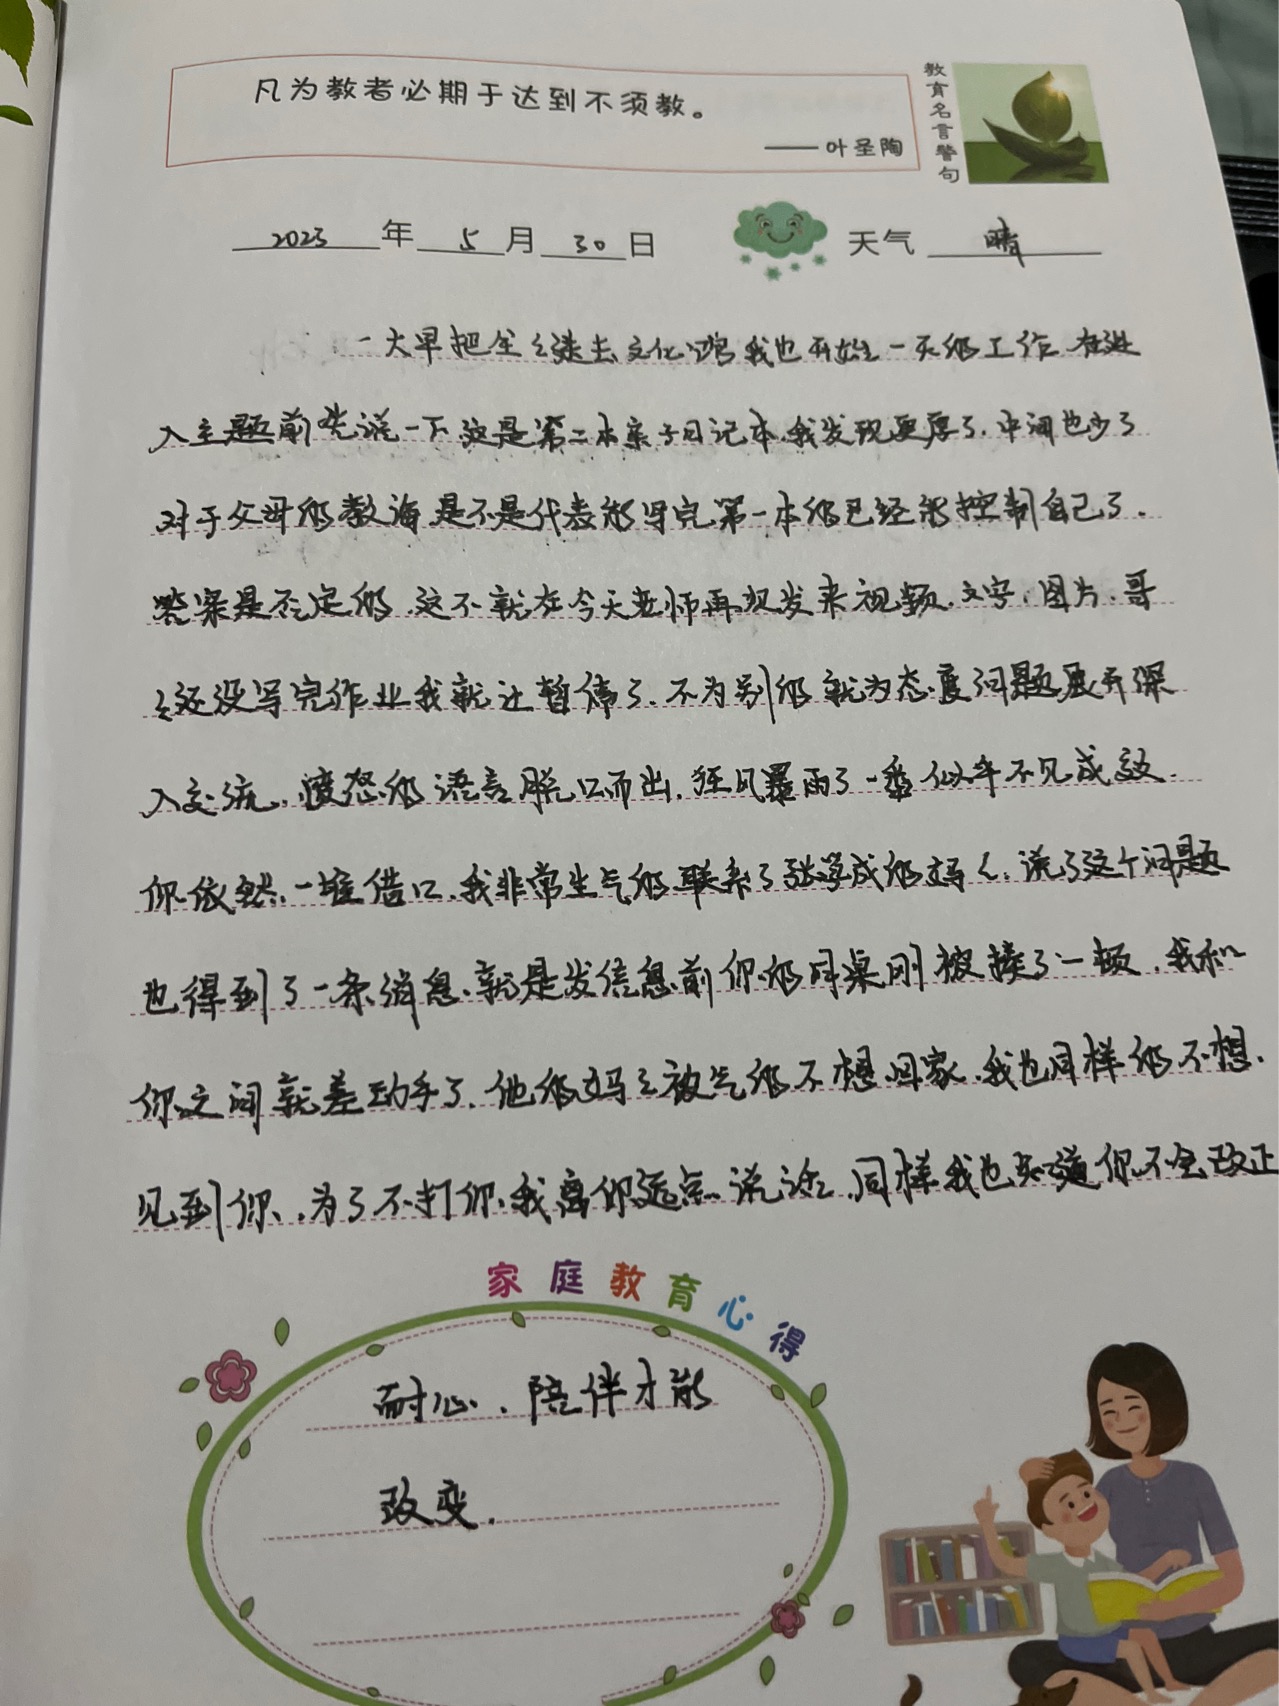 凡为教者必期于达到不须教。
——叶圣陶
教育名言警句
2023年5月30日 天气 晴
一大早把全々送去文化 我也开始一天的工作 在进
入主题前先说一下这是第二本亲子日记本.我发现更厚了.中间也少了
对于父母的教诲是不是代表的写完第一本的已经能控制自己了.
答案是否定的.这不就在今天老师再次发来视频.文字.图片.哥
々还没写完作业我就让暂停了.不为别的就为态度问题展开深
入交流.愤怒的语言脱口而出.狂风暴雨了一番似乎不见成效.
你依然一堆借口.我非常生气的联系了张学成的妈々.说了这个问题
也得到了一条消息.就是发信息前你的同桌刚被揍了一顿.我和
你之间就差动手了.他的妈々被气的不想回家.我也同样的不想.
见到你.为了不打你.我离你远点说话.同样我也知道你不会改正
家庭教育心得
耐心.陪伴才能
改变.